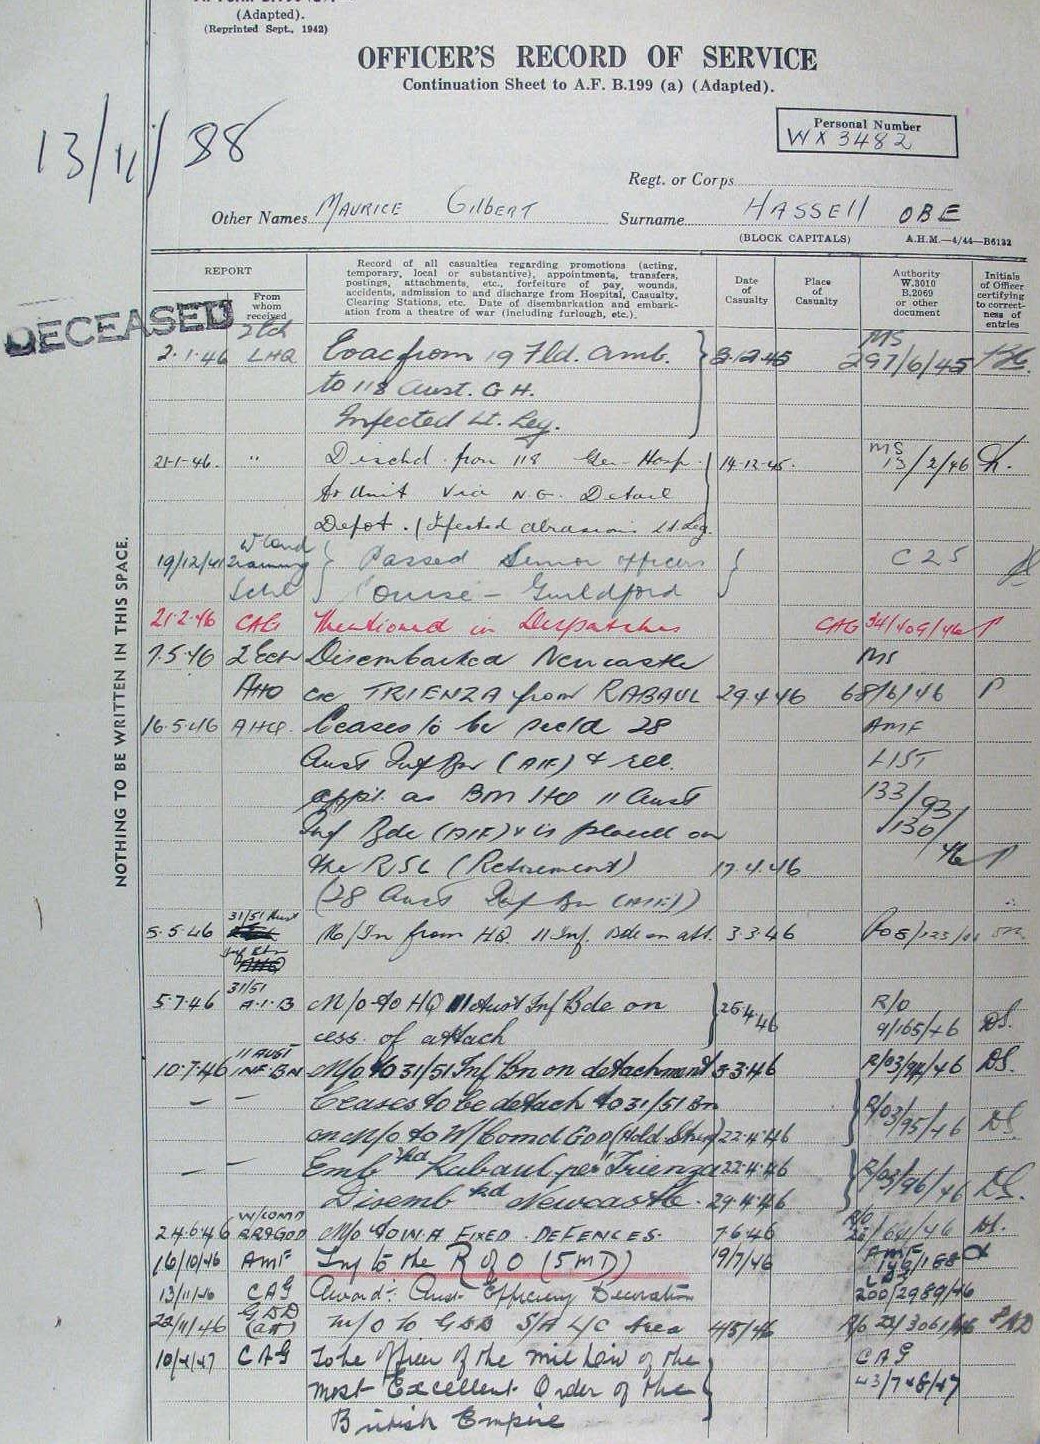 (Adapted).
(Reprinted Sept., 1942)
OFFICER'S RECORD OF SERVICE
Continuation Sheet to A.F. B.199 (a) (Adapted).
13/11/88
Personal Number
WX3482
Regt. or Corps
Other Names MAURICE GILBERT Surname HASSELL OBE
(BLOCK CAPITALS) A.H.M.—4/44—B6132
REPORT
From whom received
Record of all casualties regarding promotions (acting, temporary, local or substantive), appointments, transfers, postings, attachments, etc., forfeiture of pay, wounds, accidents, admission to and discharge from Hospital, Casualty, Clearing Stations, etc. Date of disembarkation and embarkation from a theatre of war (including furlough, etc.).
Date of Casualty
Place of Casualty
Authority W.3010 B.2069 or other document
Initials of Officer certifying to correctness of entries
DECEASED
NOTHING TO BE WRITTEN IN THIS SPACE.
2 Ech MS
2.1.46 LHQ Evac from 19 Fld. Amb. 8.12.45 297/6/45
to 118 Aust. G H.
Infected Lt. Leg.
21-1-46. " Dischd from 118 Gen Hosp. 14-12-45. MS 13/2/46
to Unit via N.G. Detail
Depot. (Infected abrasions Lt Leg.
19/12/41 Training Schl Passed Senior Officers C25
Course - Guildford
21.2.46 CAG Mentioned in Despatches CAG 34/409/46
7.5.46 2 Ech Disembarked Newcastle MS
AHQ ex TRIENZA from RABAUL 29.4.46 68/6/46
16.5.46 AHQ. Ceases to be secd 28 AMF
Aust Inf Bn (AIF) & rel. LIST
appt. as BM HQ 11 Aust 133/93
Inf Bde (AIF) & is placed on 130/46
the RSL (Retirement) 17.4.46
(28 Aust Inf Bn (AIF))
5.5.46 31/51 Aust Inf Bn M/In from HQ. 11 Inf. Bde on att. 3.3.46
5.7.46 31/51 A.I.B M/O to HQ 11 Aust Inf Bde on 25.4.46 R/O
cess. of attach 9/165/46 DS.
10.7.46 11 AUST INF BN M/O to 31/51 Inf Bn on detachment 3.3.46 R/03/94/46 DS.
— — Ceases to be detach to 31/51 Bn R/03/95/46
on M/O to W/Comd GDD (Hold Stren) 22.4.46 DS.
— — Emb Rabaul per "Trienza 22.4.46 R/03/96/46
Disemb Newcastle. 29.4.46 DS.
24.6.46 W/COMD RR&GDD M/O TO W.A FIXED DEFENCES. 7.6.46 DS.
16/10/46 AMF Trf to the R of O (5 MD) 19/7/46 AMF
13/11/46 CAG Award: Aust Efficiency Decoration 200/2989/46
28/11/46 GDD (att) M/O to GDD S/A L/C Area 4/5/46
10/4/47 CAG To be Officer of the Mil Div of the CAG
most Excellent Order of the 43/748/47
British Empire